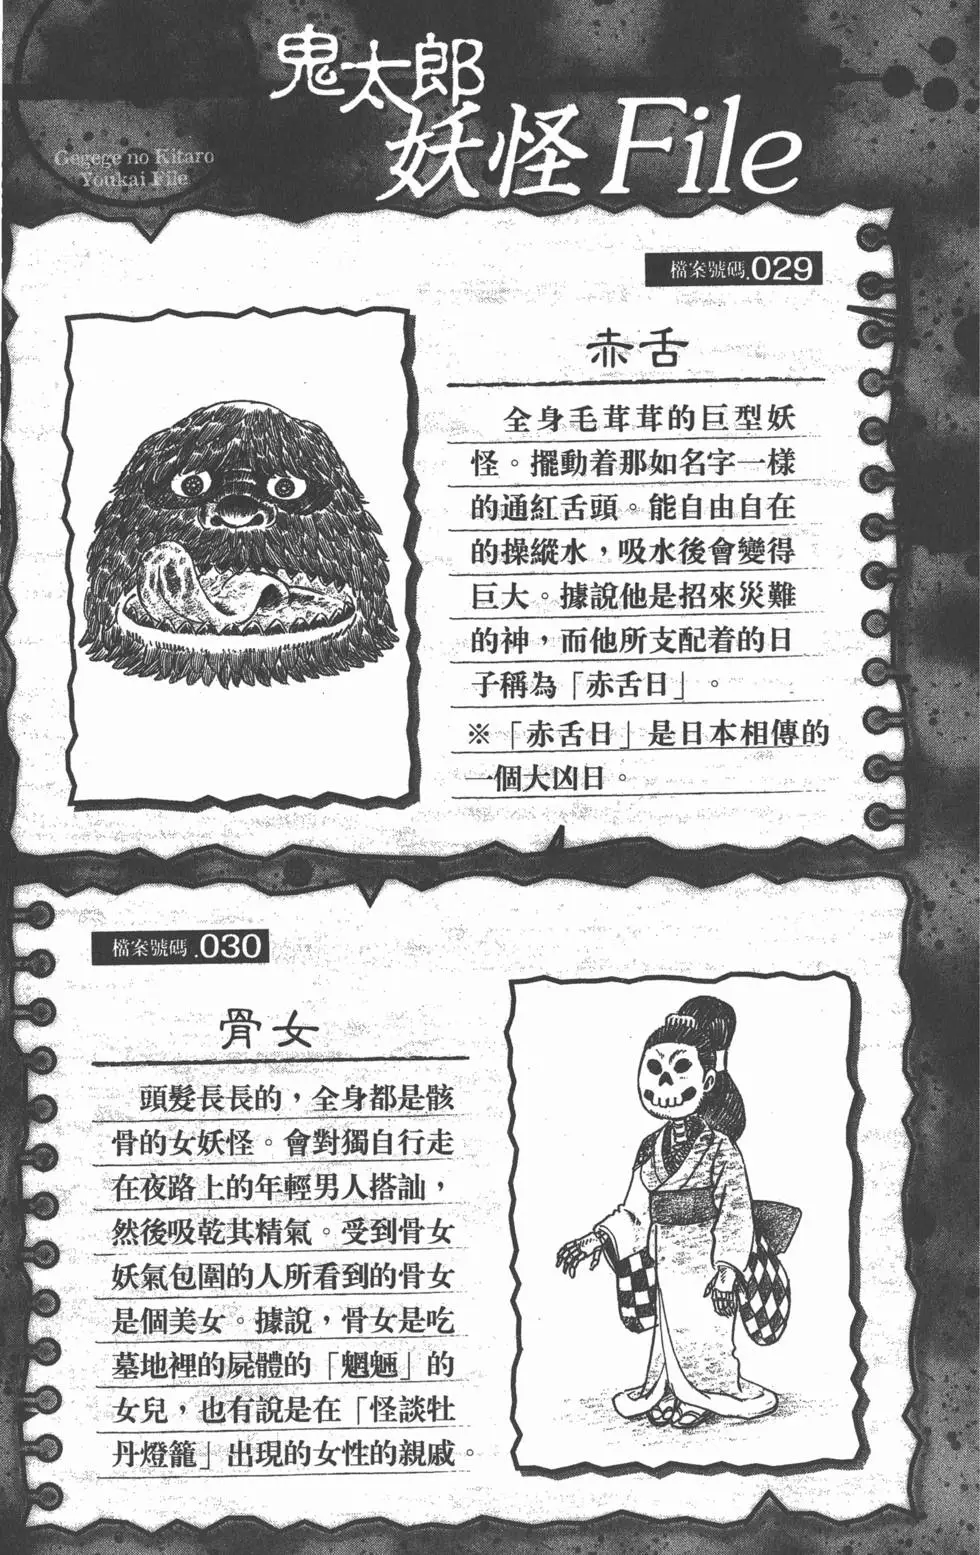 鬼太郎
妖怪File
Gegege no Kitaro
Youkai File
檔案號碼.029
赤舌
全身毛茸茸的巨型妖
怪。擺動着那如名字一樣
的通紅舌頭。能自由自在
的操縱水，吸水後會變得
巨大。據說他是招來災難
的神，而他所支配着的日
子稱為「赤舌日」。
※「赤舌日」是日本相傳的
一個大凶日。
檔案號碼.030
骨女
頭髮長長的，全身都是骸
骨的女妖怪。會對獨自行走
在夜路上的年輕男人搭訕，
然後吸乾其精氣。受到骨女
妖氣包圍的人所看到的骨女
是個美女。據說，骨女是吃
墓地裡的屍體的「魍魎」的
女兒，也有說是在「怪談牡
丹燈籠」出現的女性的親戚。